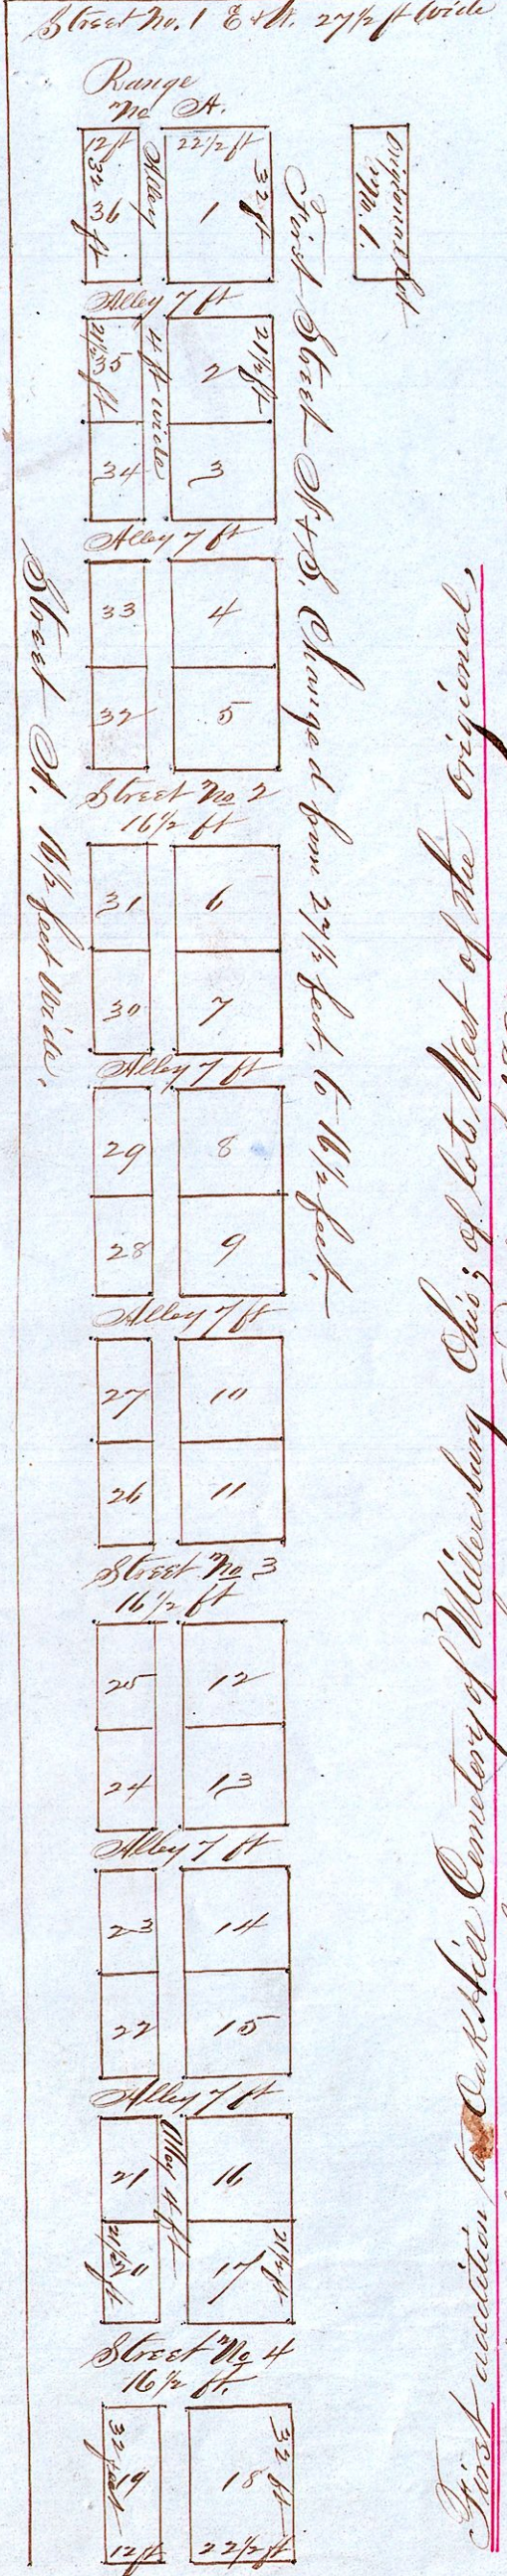 Street No. 1 E & W. 27 1/2 ft Wide
Range
No A.
12 ft
22 1/2 ft
36
ft
Alley
1
32 ft
Origional Lot
No. 1.
Alley 7 ft
21 1/2
35
ft
4 ft wide
2
21 1/2 ft
34
3
Alley 7 ft
33
4
32
5
Street No 2
16 1/2 ft
31
6
30
7
Alley 7 ft
29
8
28
9
Alley 7 ft
27
10
26
11
Street No 3
16 1/2 ft
25
12
24
13
Alley 7 ft
23
14
22
15
Alley 7 ft
21
Alley 4 ft
16
21 1/2
20
ft
17
21 1/2 ft
Street No 4
16 1/2 ft.
32 feet
19
12 ft
18
32 ft
22 1/2 ft
Street A. 16 1/2 feet Wide.
First Street N & S. Changed from 27 1/2 feet, to 16 1/2 feet.
First addition to Oak Hill Cemetery of Millersburg Ohio; of lots West of the Origional,